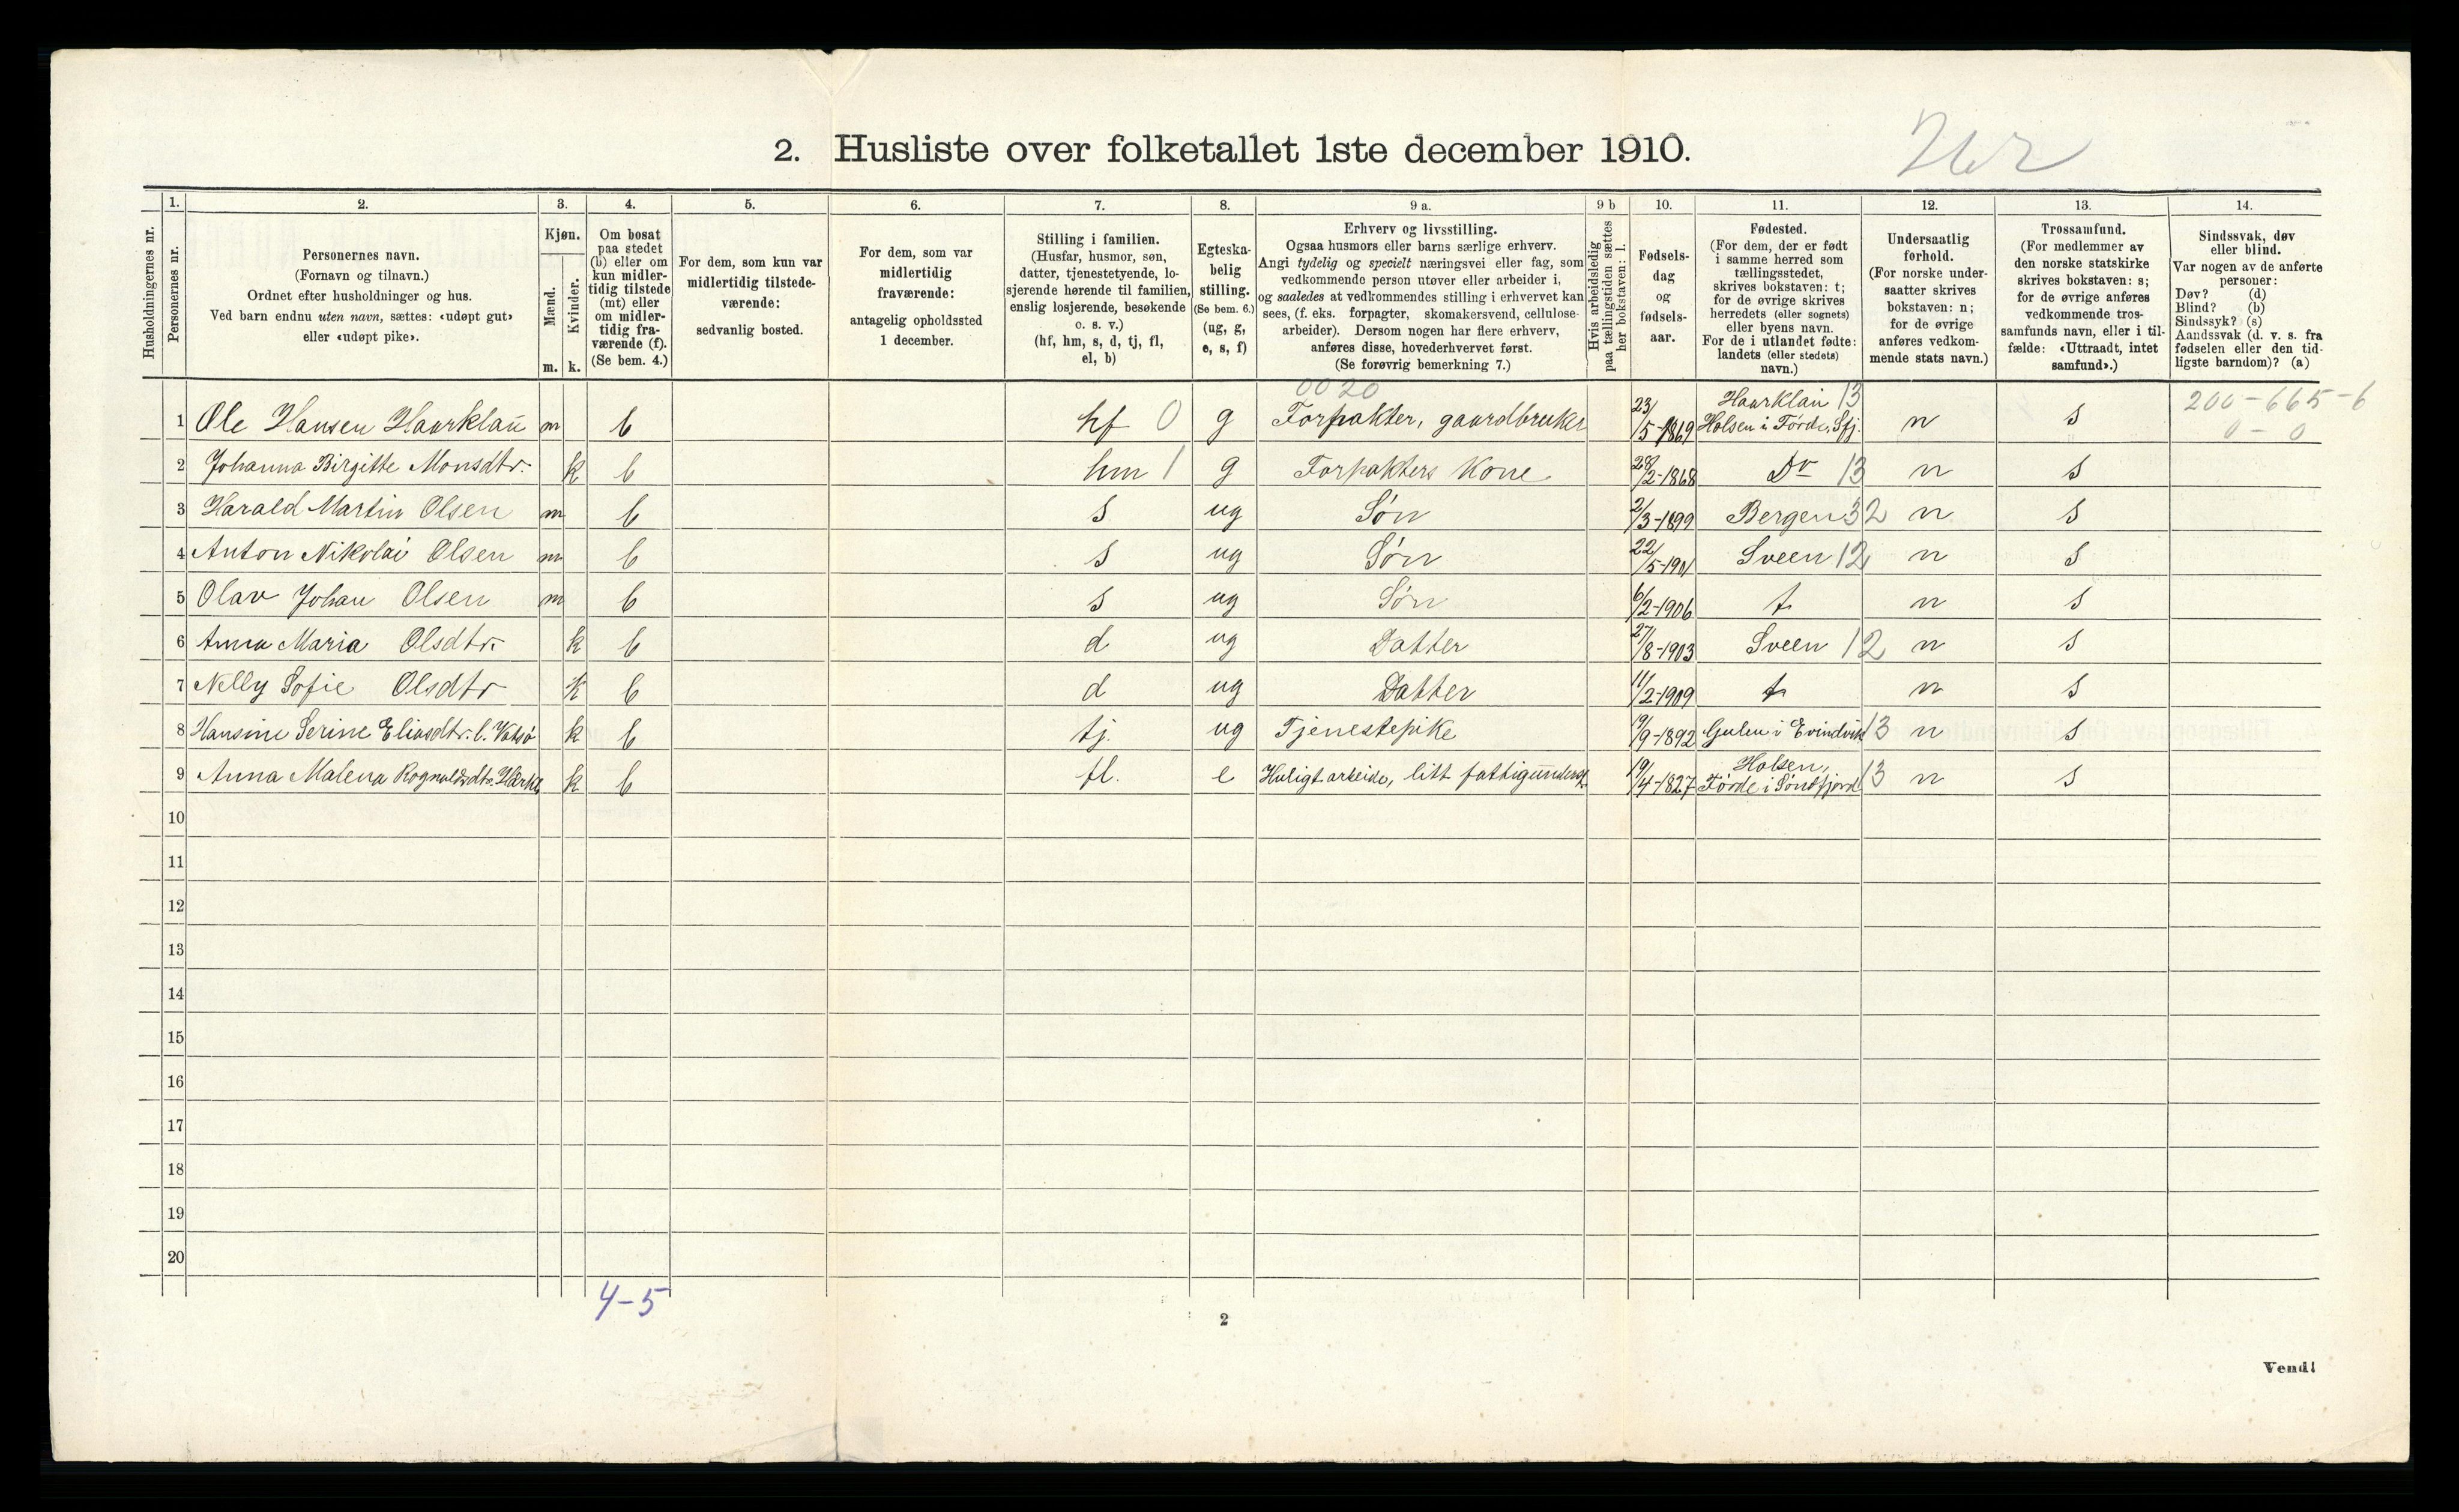 2. Husliste over folketallet 1ste december 1910.
Husholdningernes nr.
1.
Personernes nr.
2.
Personernes navn.
(Fornavn og tilnavn.)
Ordnet efter husholdninger og hus.
Ved barn endnu uten navn, sættes: «udøpt gut»
eller «udøpt pike».
3.
Kjøn.
Mænd.
Kvinder.
m. k.
4.
Om bosat
paa stedet
(b) eller om
kun midler-
tidig tilstede
(mt) eller
om midler-
tidig fra-
værende (f).
(Se bem. 4.)
5.
For dem, som kun var
midlertidig tilstede-
værende:
sedvanlig bosted.
6.
For dem, som var
midlertidig
fraværende:
antagelig opholdssted
1 december.
7.
Stilling i familien.
(Husfar, husmor, søn,
datter, tjenestetyende, lo-
sjerende hørende til familien,
enslig losjerende, besøkende
o. s. v.)
(hf, hm, s, d, tj, fl,
el, b)
8.
Egteska-
belig
stilling.
(Se bem. 6.)
(ug, g,
e, s, f)
9 a.
Erhverv og livsstilling.
Ogsaa husmors eller barns særlige erhverv.
Angi tydelig og specielt næringsvei eller fag, som
vedkommende person utøver eller arbeider i,
og saaledes at vedkommendes stilling i erhvervet kan
sees, (f. eks. forpagter, skomakersvend, cellulose-
arbeider). Dersom nogen har flere erhverv,
anføres disse, hovederhvervet først.
(Se forøvrig bemerkning 7.)
9 b
Hvis arbeidsledig
paa tællingstiden sættes
her bokstaven: l.
10.
Fødsels-
dag
og
fødsels-
aar.
11.
Fødested.
(For dem, der er født
i samme herred som
tællingsstedet,
skrives bokstaven: t;
for de øvrige skrives
herredets (eller sognets)
eller byens navn.
For de i utlandet fødte:
landets (eller stedets)
navn.)
12.
Undersaatlig
forhold.
(For norske under-
saatter skrives
bokstaven: n;
for de øvrige
anføres vedkom-
mende stats navn.)
13.
Trossamfund.
(For medlemmer av
den norske statskirke
skrives bokstaven: s;
for de øvrige anføres
vedkommende tros-
samfunds navn, eller i til-
fælde: «Uttraadt, intet
samfund».)
14.
Sindssvak, døv
eller blind.
Var nogen av de anførte
personer:
Døv? (d)
Blind? (b)
Sindssyk? (s)
Aandssvak (d. v. s. fra
fødselen eller den tid-
ligste barndom)? (a)
0020 Haarklau 13 200-665-6
1 Ole Hansen Haarklau m b hf 0 g Forpakter, gaardbruker 23/5-1869 Holsen i Førde, Sfj. n s 0-0
2 Johanna Birgitte Monsdtr. k b hm 1 g Forpakters Kone 28/2-1868 Do 13 n s
3 Harald Martin Olsen m b s ug Søn 2/3-1899 Bergen 32 n s
4 Anton Nikolai Olsen m b s ug Søn 22/5-1901 Sveen 12 n s
5 Olav Johan Olsen m b s ug Søn 6/2-1906 t n s
6 Anna Maria Olsdtr. k b d ug Datter 27/8-1903 Sveen 12 n s
7 Nelly Sofie Olsdtr k b d ug Datter 11/2-1909 t n s
8 Hansine Serine Eliasdtr. k b tj. ug Tjenestepike 9/9-1892 Gulen i Evindvik 13 n s
9 Anna Malena Rognaldsdtr. k b fl. e Husligt arbeide, litt fattigunderst. 19/4-1827 Holsen, Førde i Søndfjord 13 n s
10
11
12
13
14
15
16
17
18
19
20
4-5
2
Vend!